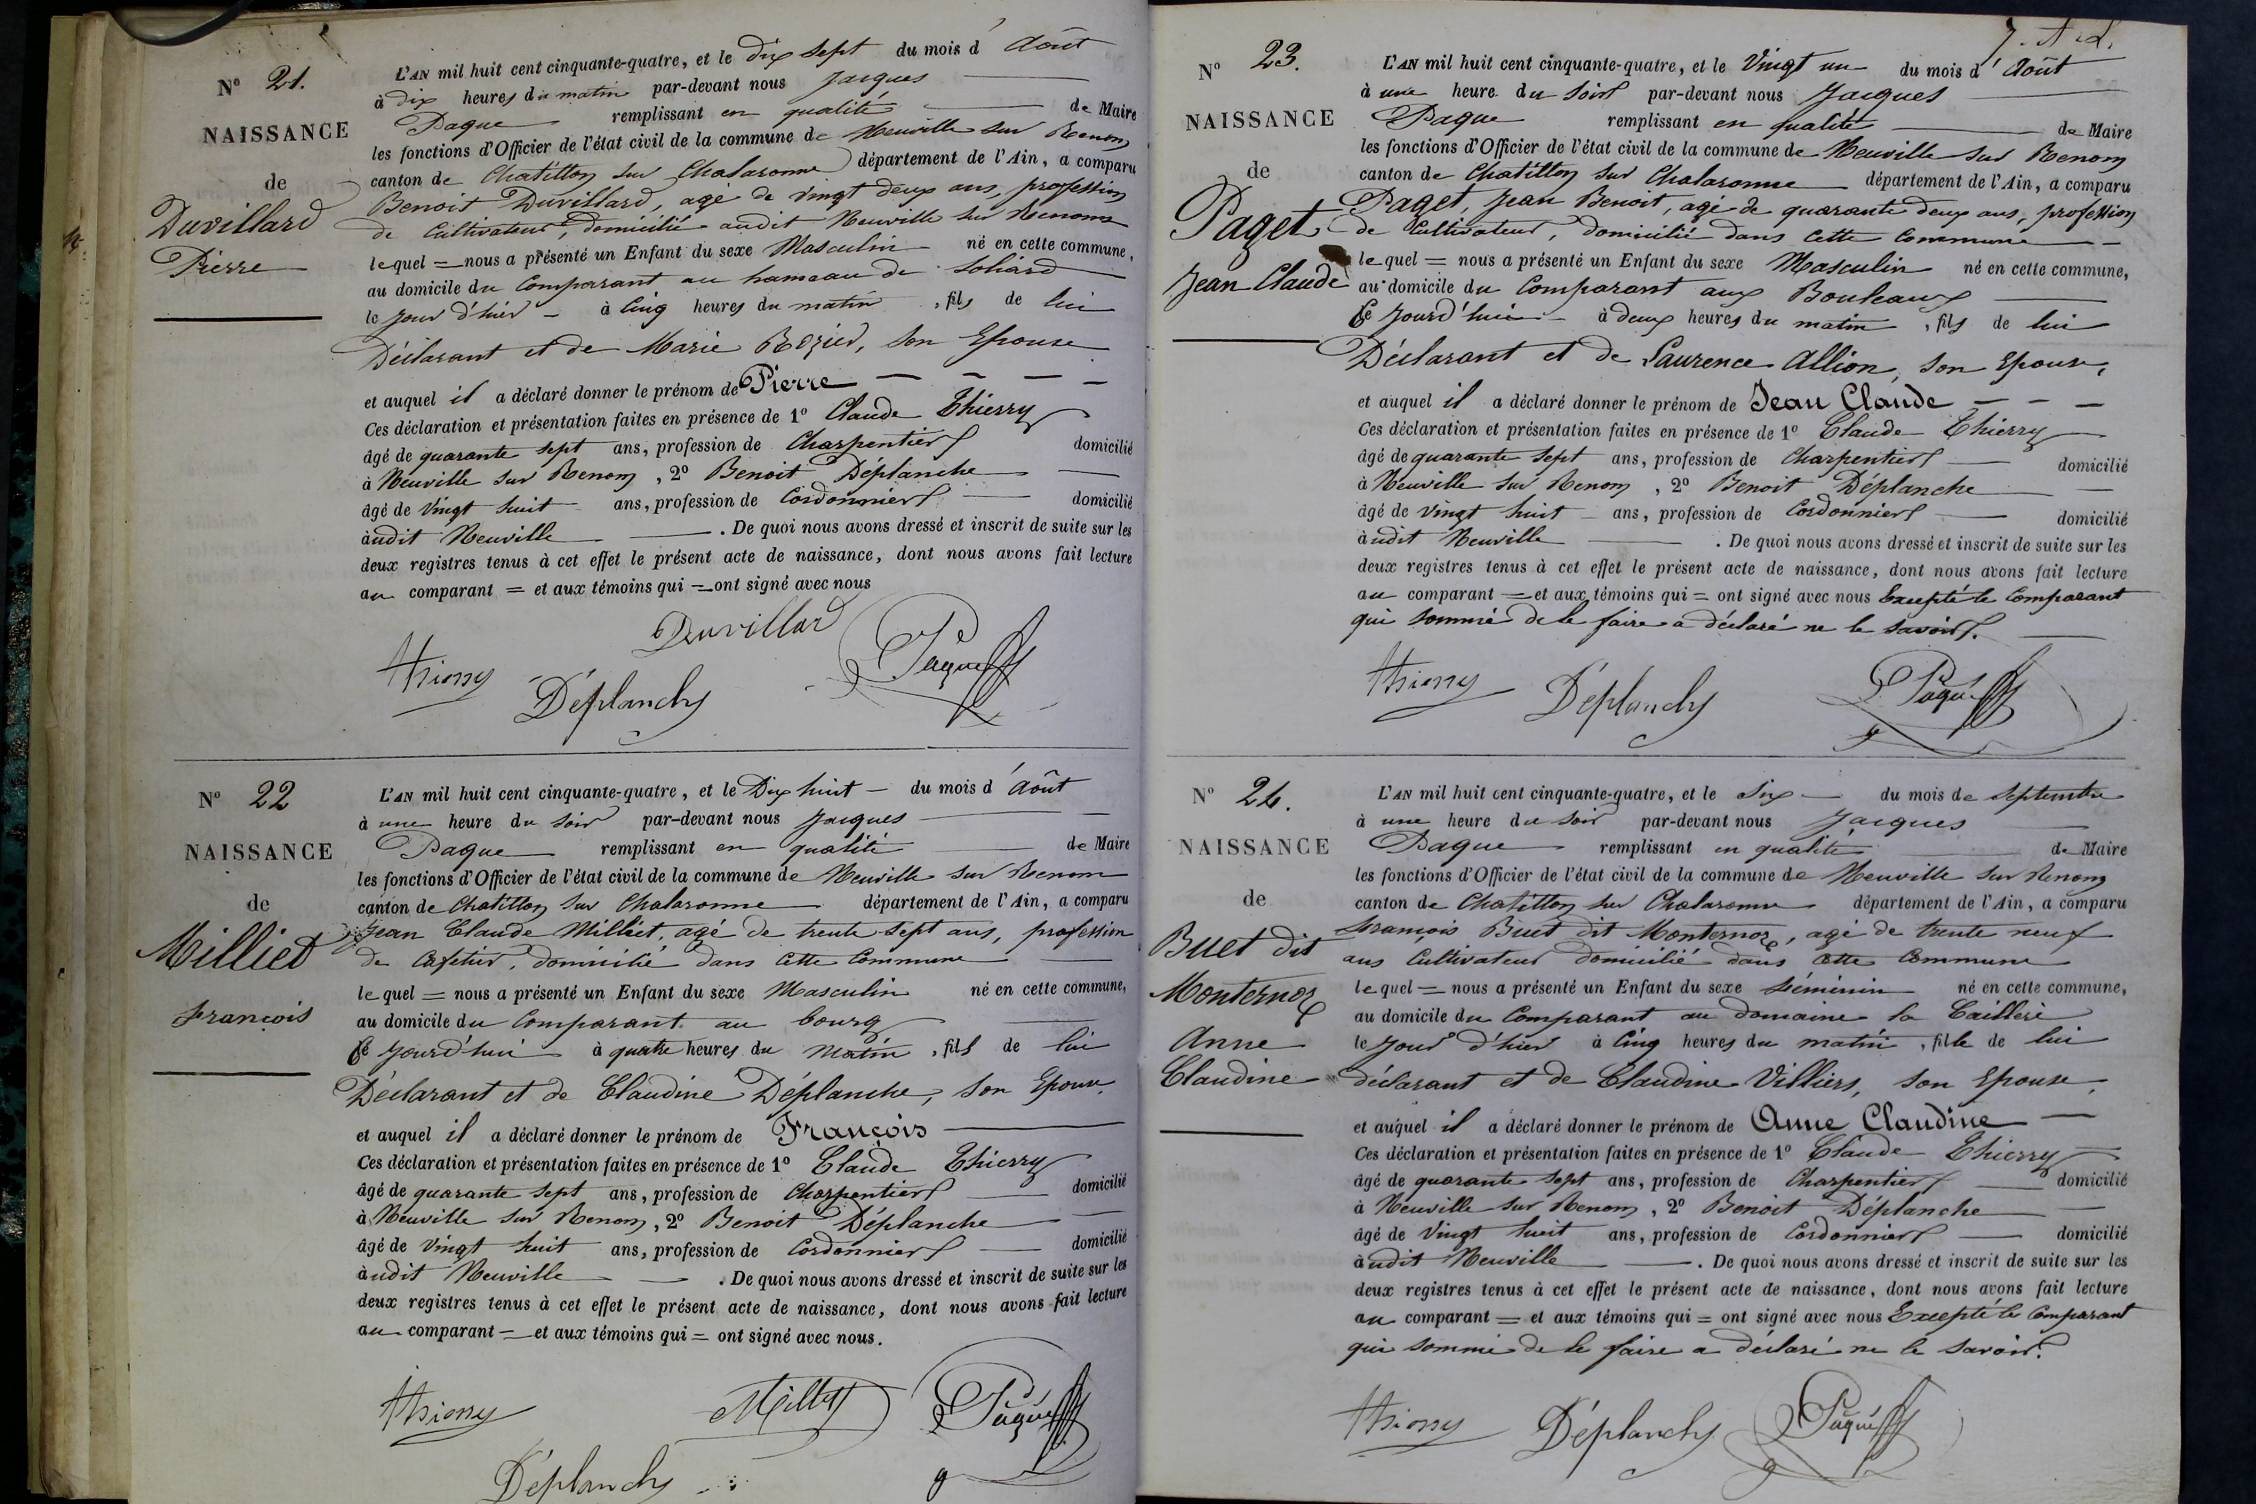 N° 21.
NAISSANCE
de
Duvillard
Pierre
L'AN mil huit cent cinquante-quatre, et le dix sept du mois d'Août
à dix heures du matin par-devant nous Jacques
Paque remplissant en qualité de Maire
les fonctions d'Officier de l'état civil de la commune de Neuville sur Renom
canton de Chatillon sur Chalaronne département de l'Ain, a comparu
Benoit Duvillard, agé de vingt deux ans, profession
de Cultivateur, domicilié audit Neuville sur Renom
lequel = nous a présenté un Enfant du sexe Masculin né en cette commune,
au domicile du Comparant au hameau de
le jour d'hier à cinq heures du matin, fils de lui
Déclarant et de Marie Rozier, son Epouse
et auquel il a déclaré donner le prénom de Pierre
Ces déclaration et présentation faites en présence de 1° Claude Thierry
âgé de quarante sept ans, profession de Charpentier domicilié
à Neuville sur Renom, 2° Benoit Déplanche
âgé de vingt huit ans, profession de Cordonnier domicilié
àudit Neuville. De quoi nous avons dressé et inscrit de suite sur les
deux registres tenus à cet effet le présent acte de naissance, dont nous avons fait lecture
au comparant = et aux témoins qui = ont signé avec nous
Duvillard
Thierry Déplanche Pâque
N° 22
NAISSANCE
de
Milliet
François
L'AN mil huit cent cinquante-quatre, et le Dix huit du mois d'Août
à une heure du soir par-devant nous Jacques
Paque remplissant en qualité de Maire
les fonctions d'Officier de l'état civil de la commune de Neuville sur Renom
canton de Chatillon sur Chalaronne département de l'Ain, a comparu
Jean Claude Milliet, agé de trente sept ans, profession
de Cafetier, domicilié dans cette Commune
lequel = nous a présenté un Enfant du sexe Masculin né en cette commune,
au domicile du Comparant au bourg
ce jourd'hui à quatre heures du matin, fils de lui
Déclarant et de Claudine Déplanche, son Epouse.
et auquel il a déclaré donner le prénom de François
Ces déclaration et présentation faites en présence de 1° Claude Thierry
âgé de quarante sept ans, profession de Charpentier domicilié
à Neuville sur Renom, 2° Benoit Déplanche
âgé de vingt huit ans, profession de Cordonnier domicilié
àudit Neuville. De quoi nous avons dressé et inscrit de suite sur les
deux registres tenus à cet effet le présent acte de naissance, dont nous avons fait lecture
au comparant = et aux témoins qui = ont signé avec nous.
Thierry Milliet Pâque
Déplanche
N° 23.
NAISSANCE
de
Paget
Jean Claude
L'AN mil huit cent cinquante-quatre, et le Vingt un du mois d'Août
à une heure du soir par-devant nous Jacques
Paque remplissant en qualité de Maire
les fonctions d'Officier de l'état civil de la commune de Neuville sur Renom
canton de Chatillon sur Chalaronne département de l'Ain, a comparu
Paget, Jean Benoit, agé de quarante deux ans, profession
de Cultivateur, domicilié dans cette Commune
lequel = nous a présenté un Enfant du sexe Masculin né en cette commune,
au domicile du Comparant aux Bouleaux
Ce jourd'hui à deux heures du matin, fils de lui
Déclarant et de Laurence Allion, son Epouse,
et auquel il a déclaré donner le prénom de Jean Claude
Ces déclaration et présentation faites en présence de 1° Claude Thierry
âgé de quarante sept ans, profession de Charpentier domicilié
à Neuville sur Renom, 2° Benoit Déplanche
âgé de vingt huit ans, profession de Cordonnier domicilié
àudit Neuville. De quoi nous avons dressé et inscrit de suite sur les
deux registres tenus à cet effet le présent acte de naissance, dont nous avons fait lecture
au comparant = et aux témoins qui = ont signé avec nous Excepté le Comparant
qui sommé de le faire a déclaré ne le savoir.
Thierry Déplanche Pâque
N° 24.
NAISSANCE
de
Buet dit
Monternoz
Anne
Claudine
L'AN mil huit cent cinquante-quatre, et le Six du mois de Septembre
à une heure du soir par-devant nous Jacques
Paque remplissant en qualité de Maire
les fonctions d'Officier de l'état civil de la commune de Neuville sur Renom
canton de Chatillon sur Chalaronne département de l'Ain, a comparu
François Buet dit Monternoz, agé de trente neuf
ans Cultivateur domicilié dans cette Commune
lequel = nous a présenté un Enfant du sexe féminin né en cette commune,
au domicile du Comparant au domaine la Caillere
le jour d'hier à cinq heures du matin, fille de lui
déclarant et de Claudine Villiers, son Epouse,
et auquel il a déclaré donner le prénom de Anne Claudine
Ces déclaration et présentation faites en présence de 1° Claude Thierry
âgé de quarante sept ans, profession de Charpentier domicilié
à Neuville sur Renom, 2° Benoit Déplanche
âgé de vingt huit ans, profession de Cordonnier domicilié
àudit Neuville. De quoi nous avons dressé et inscrit de suite sur les
deux registres tenus à cet effet le présent acte de naissance, dont nous avons fait lecture
au comparant = et aux témoins qui = ont signé avec nous Excepté le Comparant
qui sommé de le faire a déclaré ne le savoir.
Thierry Déplanche Pâque